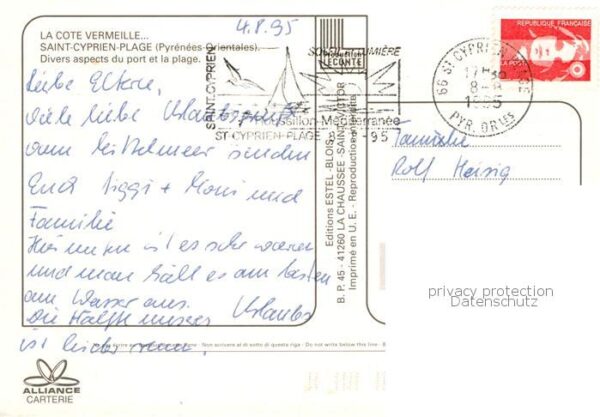 4.8.95
LA COTE VERMEILLE...
SAINT-CYPRIEN-PLAGE (Pyrénées-Orientales).
Divers aspects du port et la plage.
Liebe Eltern,
viele liebe Urlaubsgrüße
vom Mittelmeer senden
Euch Siggi + Moni und
Familie
Hier unten ist es sehr warm
und man hält es am besten
am Wasser aus.
Die Hälfte unseres Urlaubs
ist leider rum.
ALLIANCE
CARTERIE
Production
LECONTE
Editions ESTEL-BLOIS
B. P. 45 - 41260 LA CHAUSSEE-SAINT-VICTOR
Imprimé en U. E. - Reproduction interdite
SAINT-CYPRIEN
SOLEIL LUMIÈRE
Roussillon-Méditerranée
ST-CYPRIEN-PLAGE
66 ST CYPRIEN
17H
8-8
1995
PYR. ORLES
RÉPUBLIQUE FRANÇAISE
LA POSTE
Familie
Rolf Heisig
privacy protection
Datenschutz
Non scrivere al di sotto di questa riga - Do not write below this line